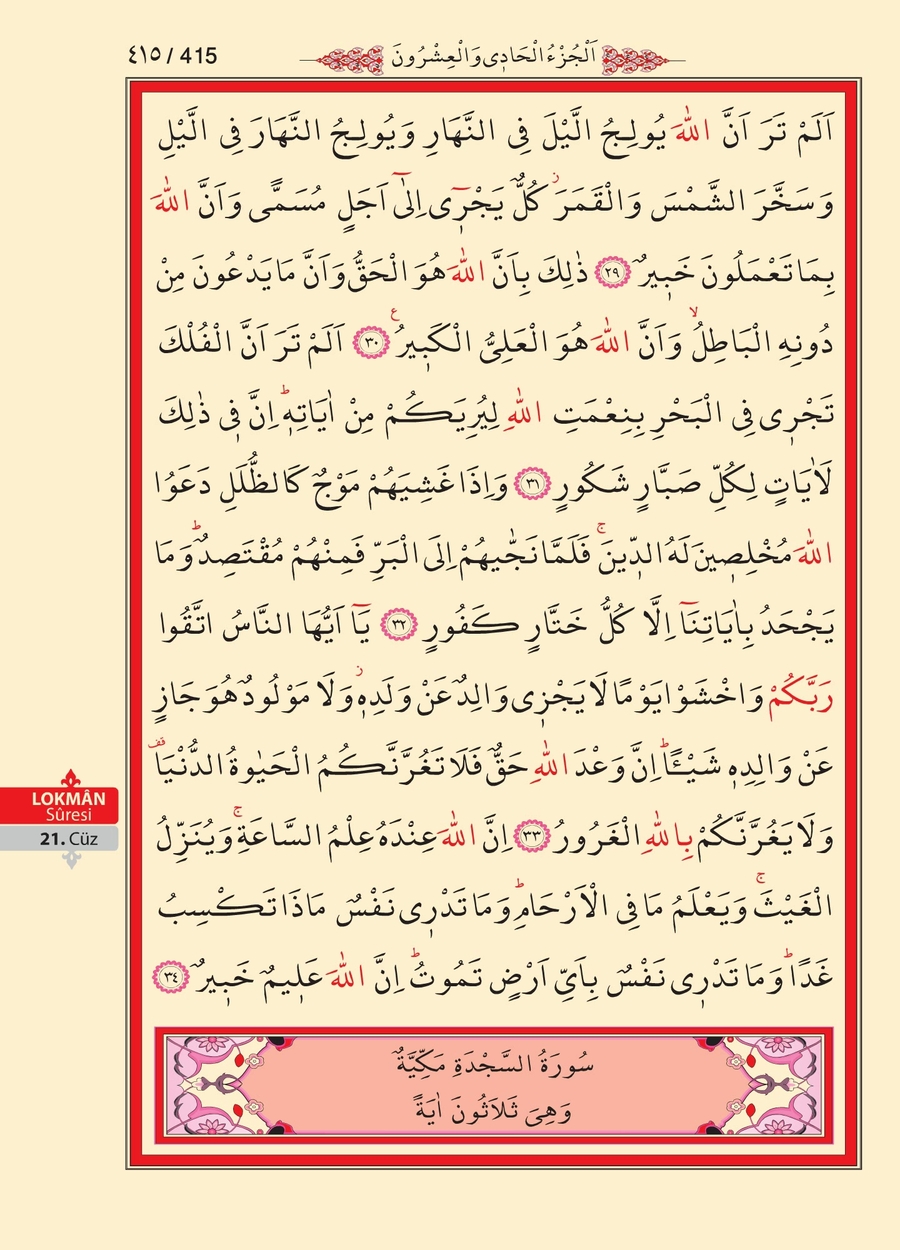 ٤١٥ / 415
اَلْجُزْءُ الْحَادِي وَالْعِشْرُونَ
اَلَمْ تَرَ اَنَّ اللّٰهَ يُولِجُ الَّيْلَ فِي النَّهَارِ وَيُولِجُ النَّهَارَ فِي الَّيْلِ
وَسَخَّرَ الشَّمْسَ وَالْقَمَرَۘ كُلٌّ يَجْر۪ٓي اِلٰٓى اَجَلٍ مُسَمًّى وَاَنَّ اللّٰهَ
بِمَا تَعْمَلُونَ خَب۪يرٌ ﴿٢٩﴾ ذٰلِكَ بِاَنَّ اللّٰهَ هُوَ الْحَقُّ وَاَنَّ مَا يَدْعُونَ مِنْ
دُونِهِ الْبَاطِلُۙ وَاَنَّ اللّٰهَ هُوَ الْعَلِيُّ الْكَب۪يرُ۟ ﴿٣٠﴾ اَلَمْ تَرَ اَنَّ الْفُلْكَ
تَجْر۪ي فِي الْبَحْرِ بِنِعْمَتِ اللّٰهِ لِيُرِيَكُمْ مِنْ اٰيَاتِه۪ۜ اِنَّ ف۪ي ذٰلِكَ
لَاٰيَاتٍ لِكُلِّ صَبَّارٍ شَكُورٍ ﴿٣١﴾ وَاِذَا غَشِيَهُمْ مَوْجٌ كَالظُّلَلِ دَعَوُا
اللّٰهَ مُخْلِص۪ينَ لَهُ الدّ۪ينَۚ فَلَمَّا نَجّٰيهُمْ اِلَى الْبَرِّ فَمِنْهُمْ مُقْتَصِدٌۜ وَمَا
يَجْحَدُ بِاٰيَاتِنَٓا اِلَّا كُلُّ خَتَّارٍ كَفُورٍ ﴿٣٢﴾ يَٓا اَيُّهَا النَّاسُ اتَّقُوا
رَبَّكُمْ وَاخْشَوْا يَوْمًا لَا يَجْز۪ي وَالِدٌ عَنْ وَلَدِه۪ۘ وَلَا مَوْلُودٌ هُوَ جَازٍ
عَنْ وَالِدِه۪ شَيْـًٔاۜ اِنَّ وَعْدَ اللّٰهِ حَقٌّ فَلَا تَغُرَّنَّكُمُ الْحَيٰوةُ الدُّنْيَا۠
وَلَا يَغُرَّنَّكُمْ بِاللّٰهِ الْغَرُورُ ﴿٣٣﴾ اِنَّ اللّٰهَ عِنْدَهُ عِلْمُ السَّاعَةِۚ وَيُنَزِّلُ
الْغَيْثَۚ وَيَعْلَمُ مَا فِي الْاَرْحَامِۜ وَمَا تَدْر۪ي نَفْسٌ مَاذَا تَكْسِبُ
غَدًاۜ وَمَا تَدْر۪ي نَفْسٌ بِاَيِّ اَرْضٍ تَمُوتُۜ اِنَّ اللّٰهَ عَل۪يمٌ خَب۪يرٌ ﴿٣٤﴾
LOKMÂN
Sûresi
21. Cüz
سُورَةُ السَّجْدَةِ مَكِّيَّةٌ
وَهِيَ ثَلَاثُونَ اٰيَةً